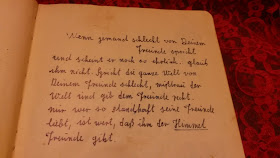 Wenn jemand schlecht von Deinem
Freunde spricht
und scheint er noch so ehrlich: glaub
ihm nicht. Spricht die ganze Welt von
Deinem Freunde schlecht, mißtrau der
Welt und gib dem Freunde recht.
Nur wer so standhaft seine Freunde
liebt, ist wert, daß ihm der Himmel
Freunde gibt.